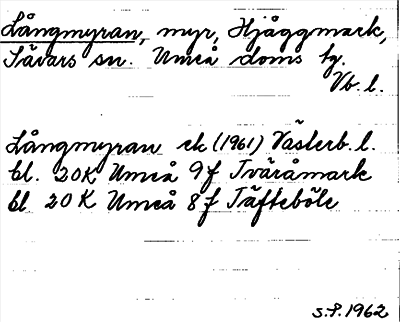 Långmyran, myr, Hjåggmark,
Sävars sn. Umeå doms tg.
Vb. l.
Långmyran ek (1961) Västerb. l.
bl. 20K Umeå 9f Tväråmark
bl 20K Umeå 8f Täfteböle
s.f. 1962